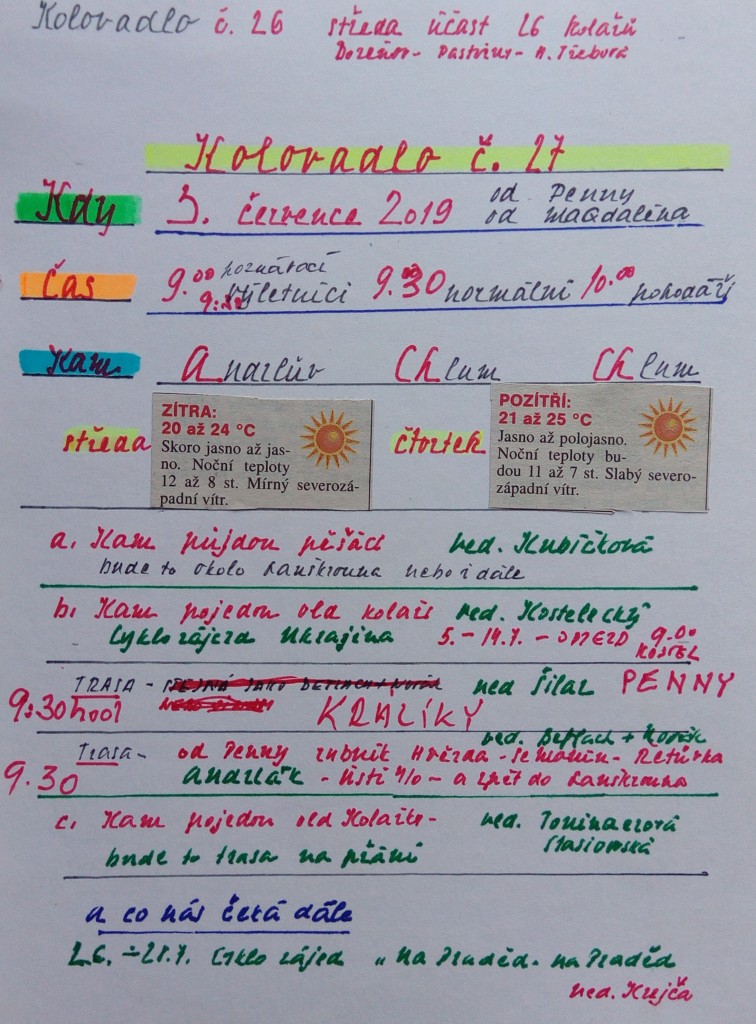 Kolovadlo č. 26 středa účast 26 kolařů
Pastviny - M. Třebová
Kolovadlo č. 27
Kdy 3. července 2019 od Penny
od Magdalína
Čas 9.00 poznávací 9.30 normální 10.00 pohodáři
9:30 výletníci
Kam Andrlův Chlum Chlum
středa
ZÍTRA:
20 až 24 °C
Skoro jasno až jas-
no. Noční teploty
12 až 8 st. Mírný severozá-
padní vítr.
čtvrtek
POZÍTŘÍ:
21 až 25 °C
Jasno až polojasno.
Noční teploty bu-
dou 11 až 7 st. Slabý severo-
západní vítr.
a, Kam půjdou pěšáci ved. Kubíčková
bude to okolo Lanškrouna nebo i dále
b, Kam pojedou old kolaři ved. Kostelecký
Cyklozájezd Ukrajina 5. - 14.7. - ODJEZD 9.00
KOSTEL
TRASA - ved Šilar PENNY
9:30 hod KRALÍKY
ved. Beftach + Novák
Trasa - od Penny rybník Hvězda - Semanín - Retůvka
9.30 Andrlák - Ústí n/O - a zpět do Lanškrouna
c, Kam pojedou old Kolařky - ved.
bude to trasa na přání
a co nás čeká dále
Cyklo zájed „ na Praděd - na Praděd
ved. Krejča